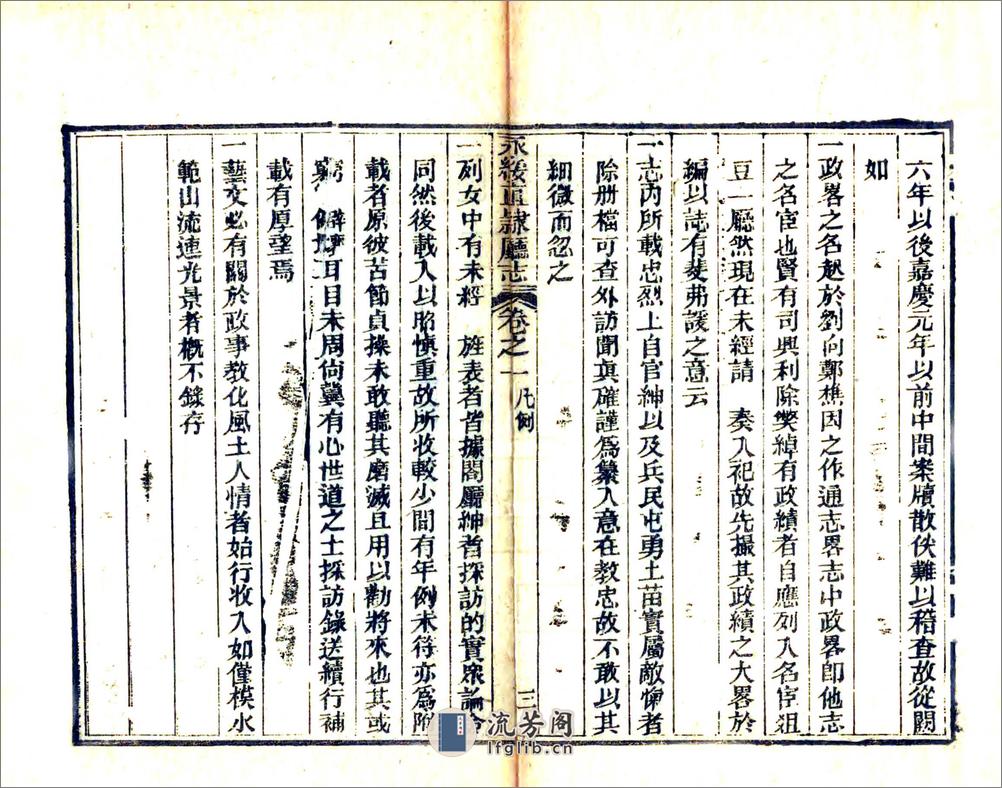 六年以後嘉慶元年以前中間案牘散佚難以稽查故從闕
如
一政畧之名起於劉向鄭樵因之作通志畧志中政畧卽他志
之名宦也賢有司興利除獘綽有政績者自應列入名宦俎
豆一廳然現在未經請　奏入祀故先撮其政績之大畧於
編以誌有斐弗諼之意云
一志內所載忠烈上自官紳以及兵民屯勇土苗實屬敵愾者
除册檔可查外訪聞眞確謹爲纂入意在教忠故不敢以其
細微而忽之
永綏直隸廳志　卷之一　凡例　三
一列女中有未經　旌表者皆據閤廳紳耆採訪的實眾論
同然後載入以昭慎重故所收較少間有年例未符亦爲附
載者原彼苦節貞操未敢聽其磨滅且用以勸將來也其或
窮　僻　耳目未周尙冀有心世道之士採訪錄送續行補
載有厚望焉
一藝文必有關於政事教化風土人情者始行收入如僅模水
範山流連光景者概不錄存
流芳阁
lfglib.cn